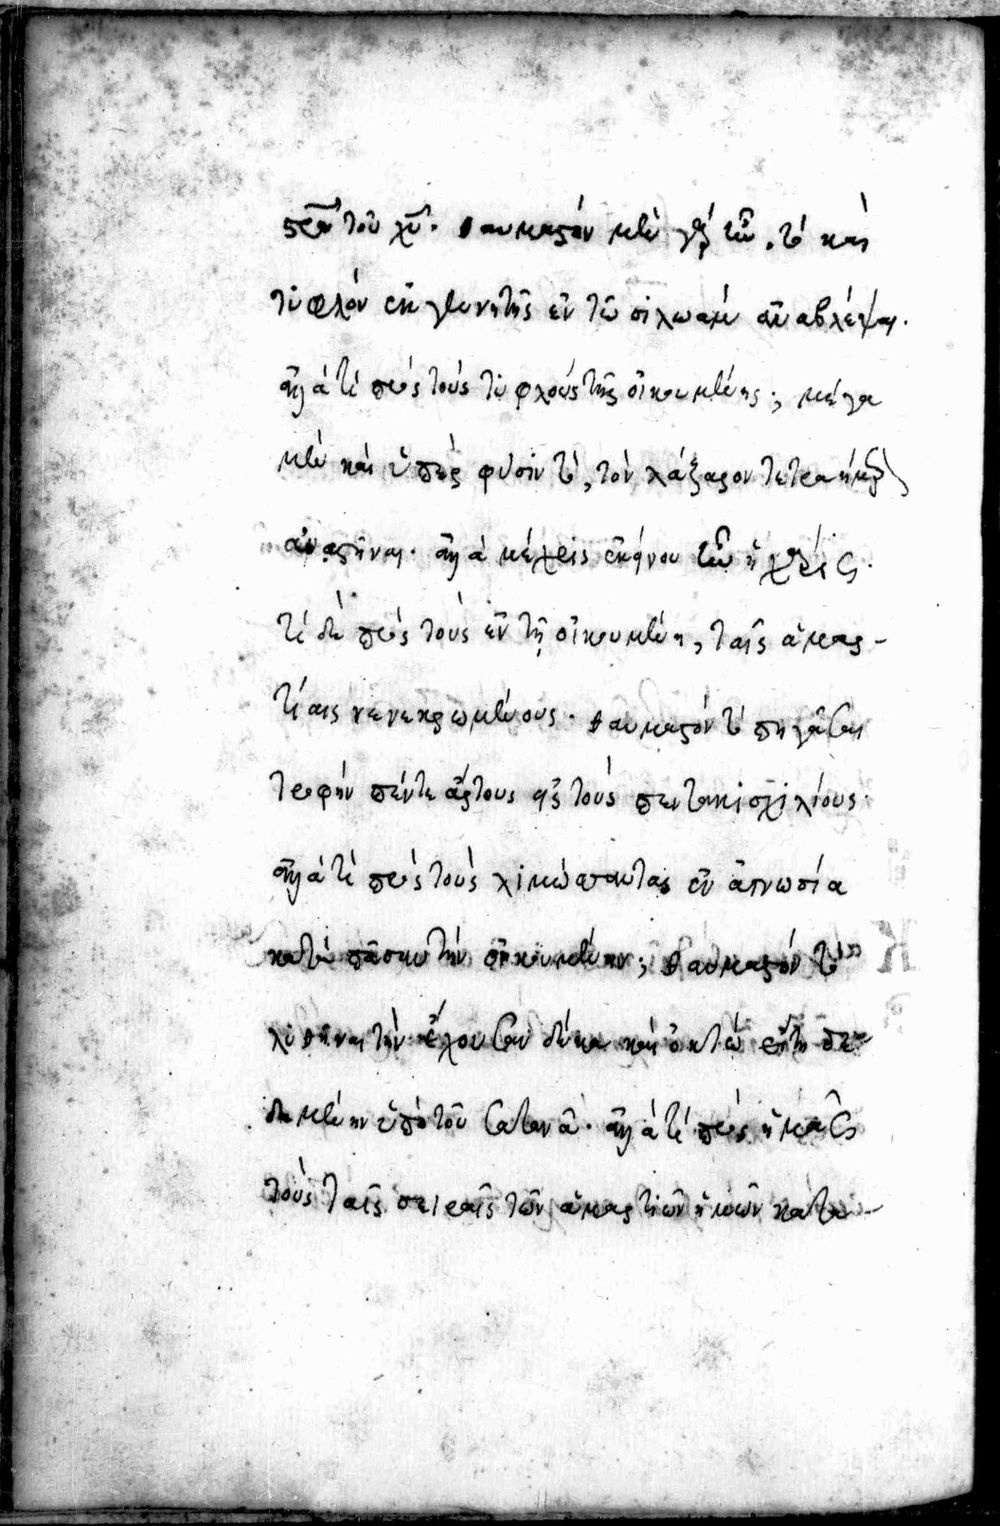 στρὸν τοῦ χυ. θαυμαστὸν μὲν γὰρ ἦν, τὸ καὶ
τυφλὸν ἐκ γενητῆς ἐν τῶ σιλωὰμ ἀναβλέψαι.
ἀλλὰ τί πρὸς τοὺς τυφλοὺς τῆς οἰκουμένης; μέγα
μὲν καὶ ὑπὲρ φύσιν τὸ, τὸν λάζαρον τετραήμερον
ἀναστῆναι. ἀλλὰ μέχρις ἐκείνου ἦν ἡ χάρις.
τί δὲ πρὸς τοὺς ἐν τῆ οἰκουμένη, ταῖς ἁμαρ-
τίαις νενεκρωμένους. θαυμαστὸν τὸ πηγάσαι
τροφὴν πέντε ἄρτους εἰς τοὺς πεντακισχιλίους
ἀλλὰ τί πρὸς τοὺς λιμώττοντας ἐν ἀγνωσία
κατὰ πᾶσαν τὴν οἰκουμένην; θαυμαστὸν τὸ
λυθῆναι τὴν ἔχουσαν δέκα καὶ ὀκτὼ ἔτη πε-
δεμένην ὑπὸ τοῦ σατανᾶ. ἀλλὰ τί πρὸς ἡμᾶς
τοὺς ταῖς σειραῖς τῶν ἁμαρτιῶν ἡμῶν κατα-